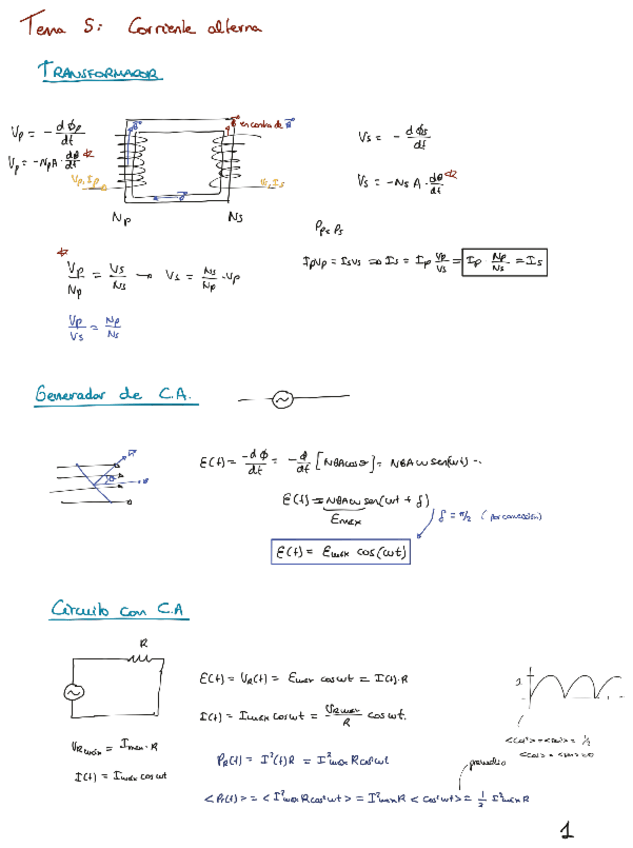 Tema 5: Corriente alterna
TRANSFORMADOR
Vp = - dϕp/dt
Vp = -NpA · dB/dt
Vp, Ip
en contra de
Vs, Is
Np
Ns
Vs = - dϕs/dt
Vs = -Ns A · dB/dt
Pp = Ps
IpVp = IsVs => Is = Ip Vp/Vs = Ip Np/Ns = Is
Vp/Np = Vs/Ns → Vs = Ns/Np · Vp
Vp/Vs = Np/Ns
Generador de C.A.
~
E(t) = -dϕ/dt = -d/dt [NBA cos] = NBAω sen(ωt) ..
E(t) = NBAω sen(ωt + δ)
Emax
δ = π/2 (por convención)
E(t) = Emáx cos(ωt)
Circuito con C.A
R
~
E(t) = VR(t) = Emax cos ωt = I(t)·R
I(t) = Imax cos ωt = VRmax/R cos ωt.
VRmáx = Imax · R
I(t) = Imax cos ωt
PR(t) = I²(t)R = I²max R cos²ωt
promedio
<Pr(t)> = <I²max R cos²ωt> = I²max R <cos²ωt> = 1/2 I²max R
<cos²> = <sen²> = 1/2
<cos> = <sen> = 0
1